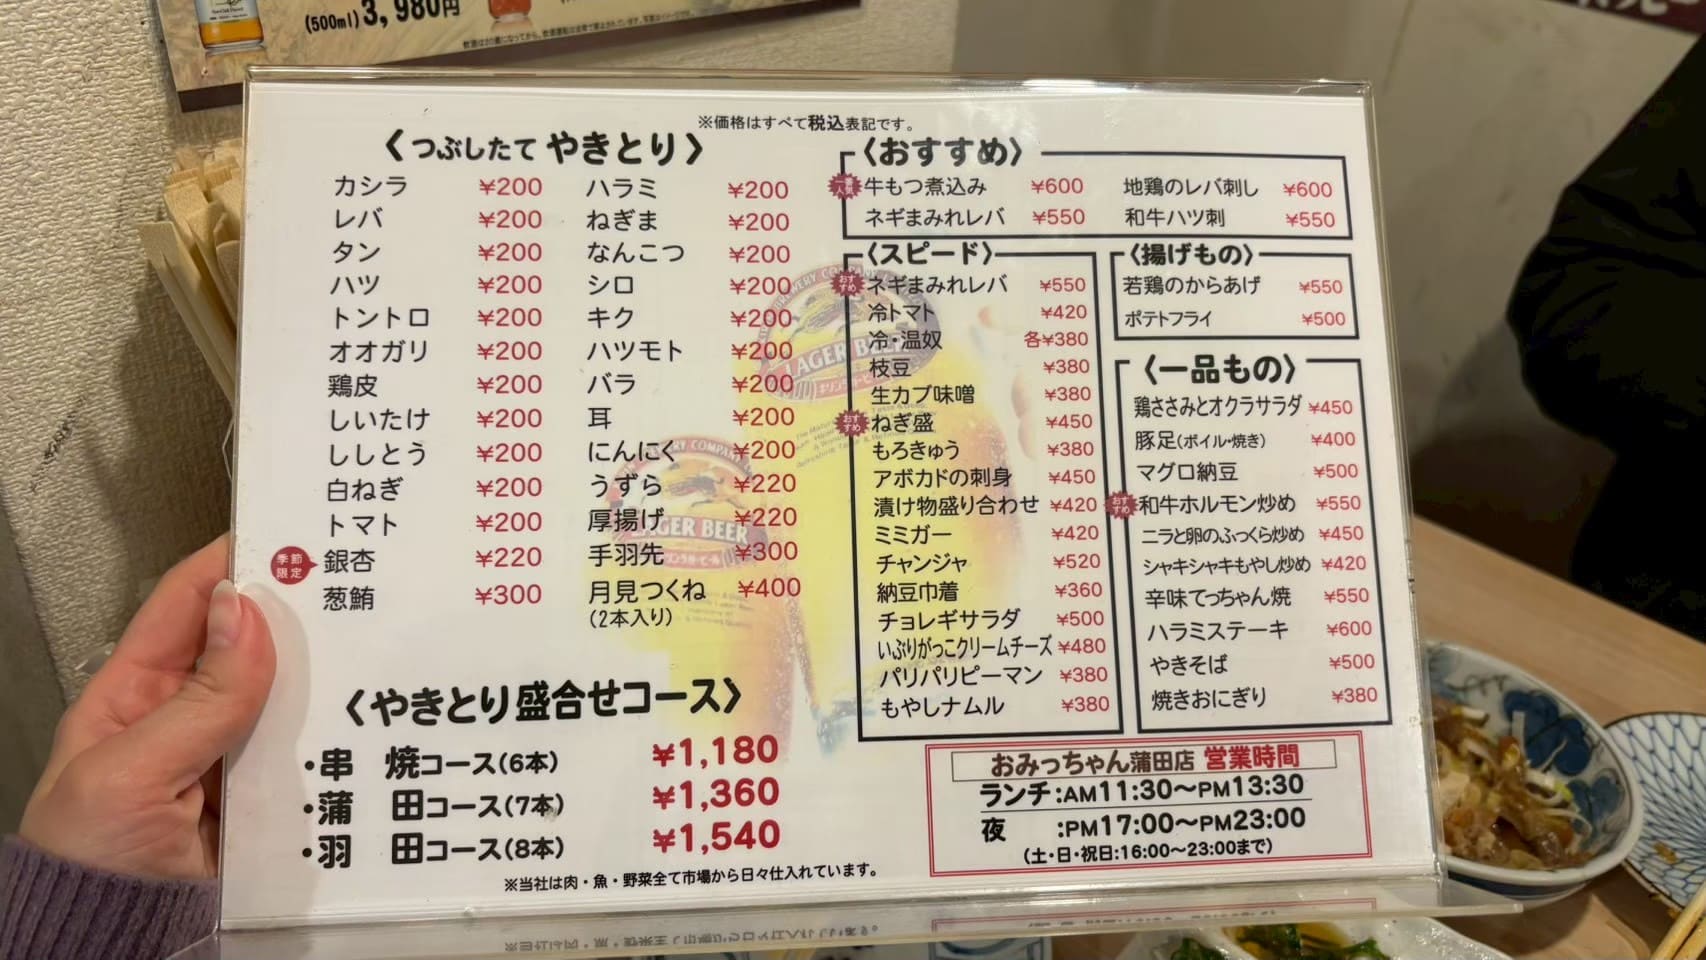 (500ml) 3,980円
※価格はすべて税込表記です。
〈つぶしたて やきとり〉
カシラ ¥200 ハラミ ¥200
レバ ¥200 ねぎま ¥200
タン ¥200 なんこつ ¥200
ハツ ¥200 シロ ¥200
トントロ ¥200 キク ¥200
オオガリ ¥200 ハツモト ¥200
鶏皮 ¥200 バラ ¥200
しいたけ ¥200 耳 ¥200
ししとう ¥200 にんにく ¥200
白ねぎ ¥200 うずら ¥220
トマト ¥200 厚揚げ ¥220
季節限定 銀杏 ¥220 手羽先 ¥300
葱鮪 ¥300 月見つくね ¥400
(2本入り)
〈やきとり盛合せコース〉
・串 焼コース(6本) ¥1,180
・蒲 田コース(7本) ¥1,360
・羽 田コース(8本) ¥1,540
※当社は肉・魚・野菜全て市場から日々仕入れています。
〈おすすめ〉
一番人気 牛もつ煮込み ¥600 地鶏のレバ刺し ¥600
ネギまみれレバ ¥550 和牛ハツ刺 ¥550
〈スピード〉
おすすめ ネギまみれレバ ¥550
冷トマト ¥420
冷・温奴 各¥380
枝豆 ¥380
生カブ味噌 ¥380
おすすめ ねぎ盛 ¥450
もろきゅう ¥380
アボカドの刺身 ¥450
漬け物盛り合わせ ¥420
ミミガー ¥420
チャンジャ ¥520
納豆巾着 ¥360
チョレギサラダ ¥500
いぶりがっこクリームチーズ ¥480
パリパリピーマン ¥380
もやしナムル ¥380
〈揚げもの〉
若鶏のからあげ ¥550
ポテトフライ ¥500
〈一品もの〉
鶏ささみとオクラサラダ ¥450
豚足(ボイル・焼き) ¥400
マグロ納豆 ¥500
おすすめ 和牛ホルモン炒め ¥550
ニラと卵のふっくら炒め ¥450
シャキシャキもやし炒め ¥420
辛味てっちゃん焼 ¥550
ハラミステーキ ¥600
やきそば ¥500
焼きおにぎり ¥380
おみっちゃん蒲田店 営業時間
ランチ:AM11:30〜PM13:30
夜 :PM17:00〜PM23:00
(土・日・祝日:16:00〜23:00まで)
LAGER BEER
LAGER BEER